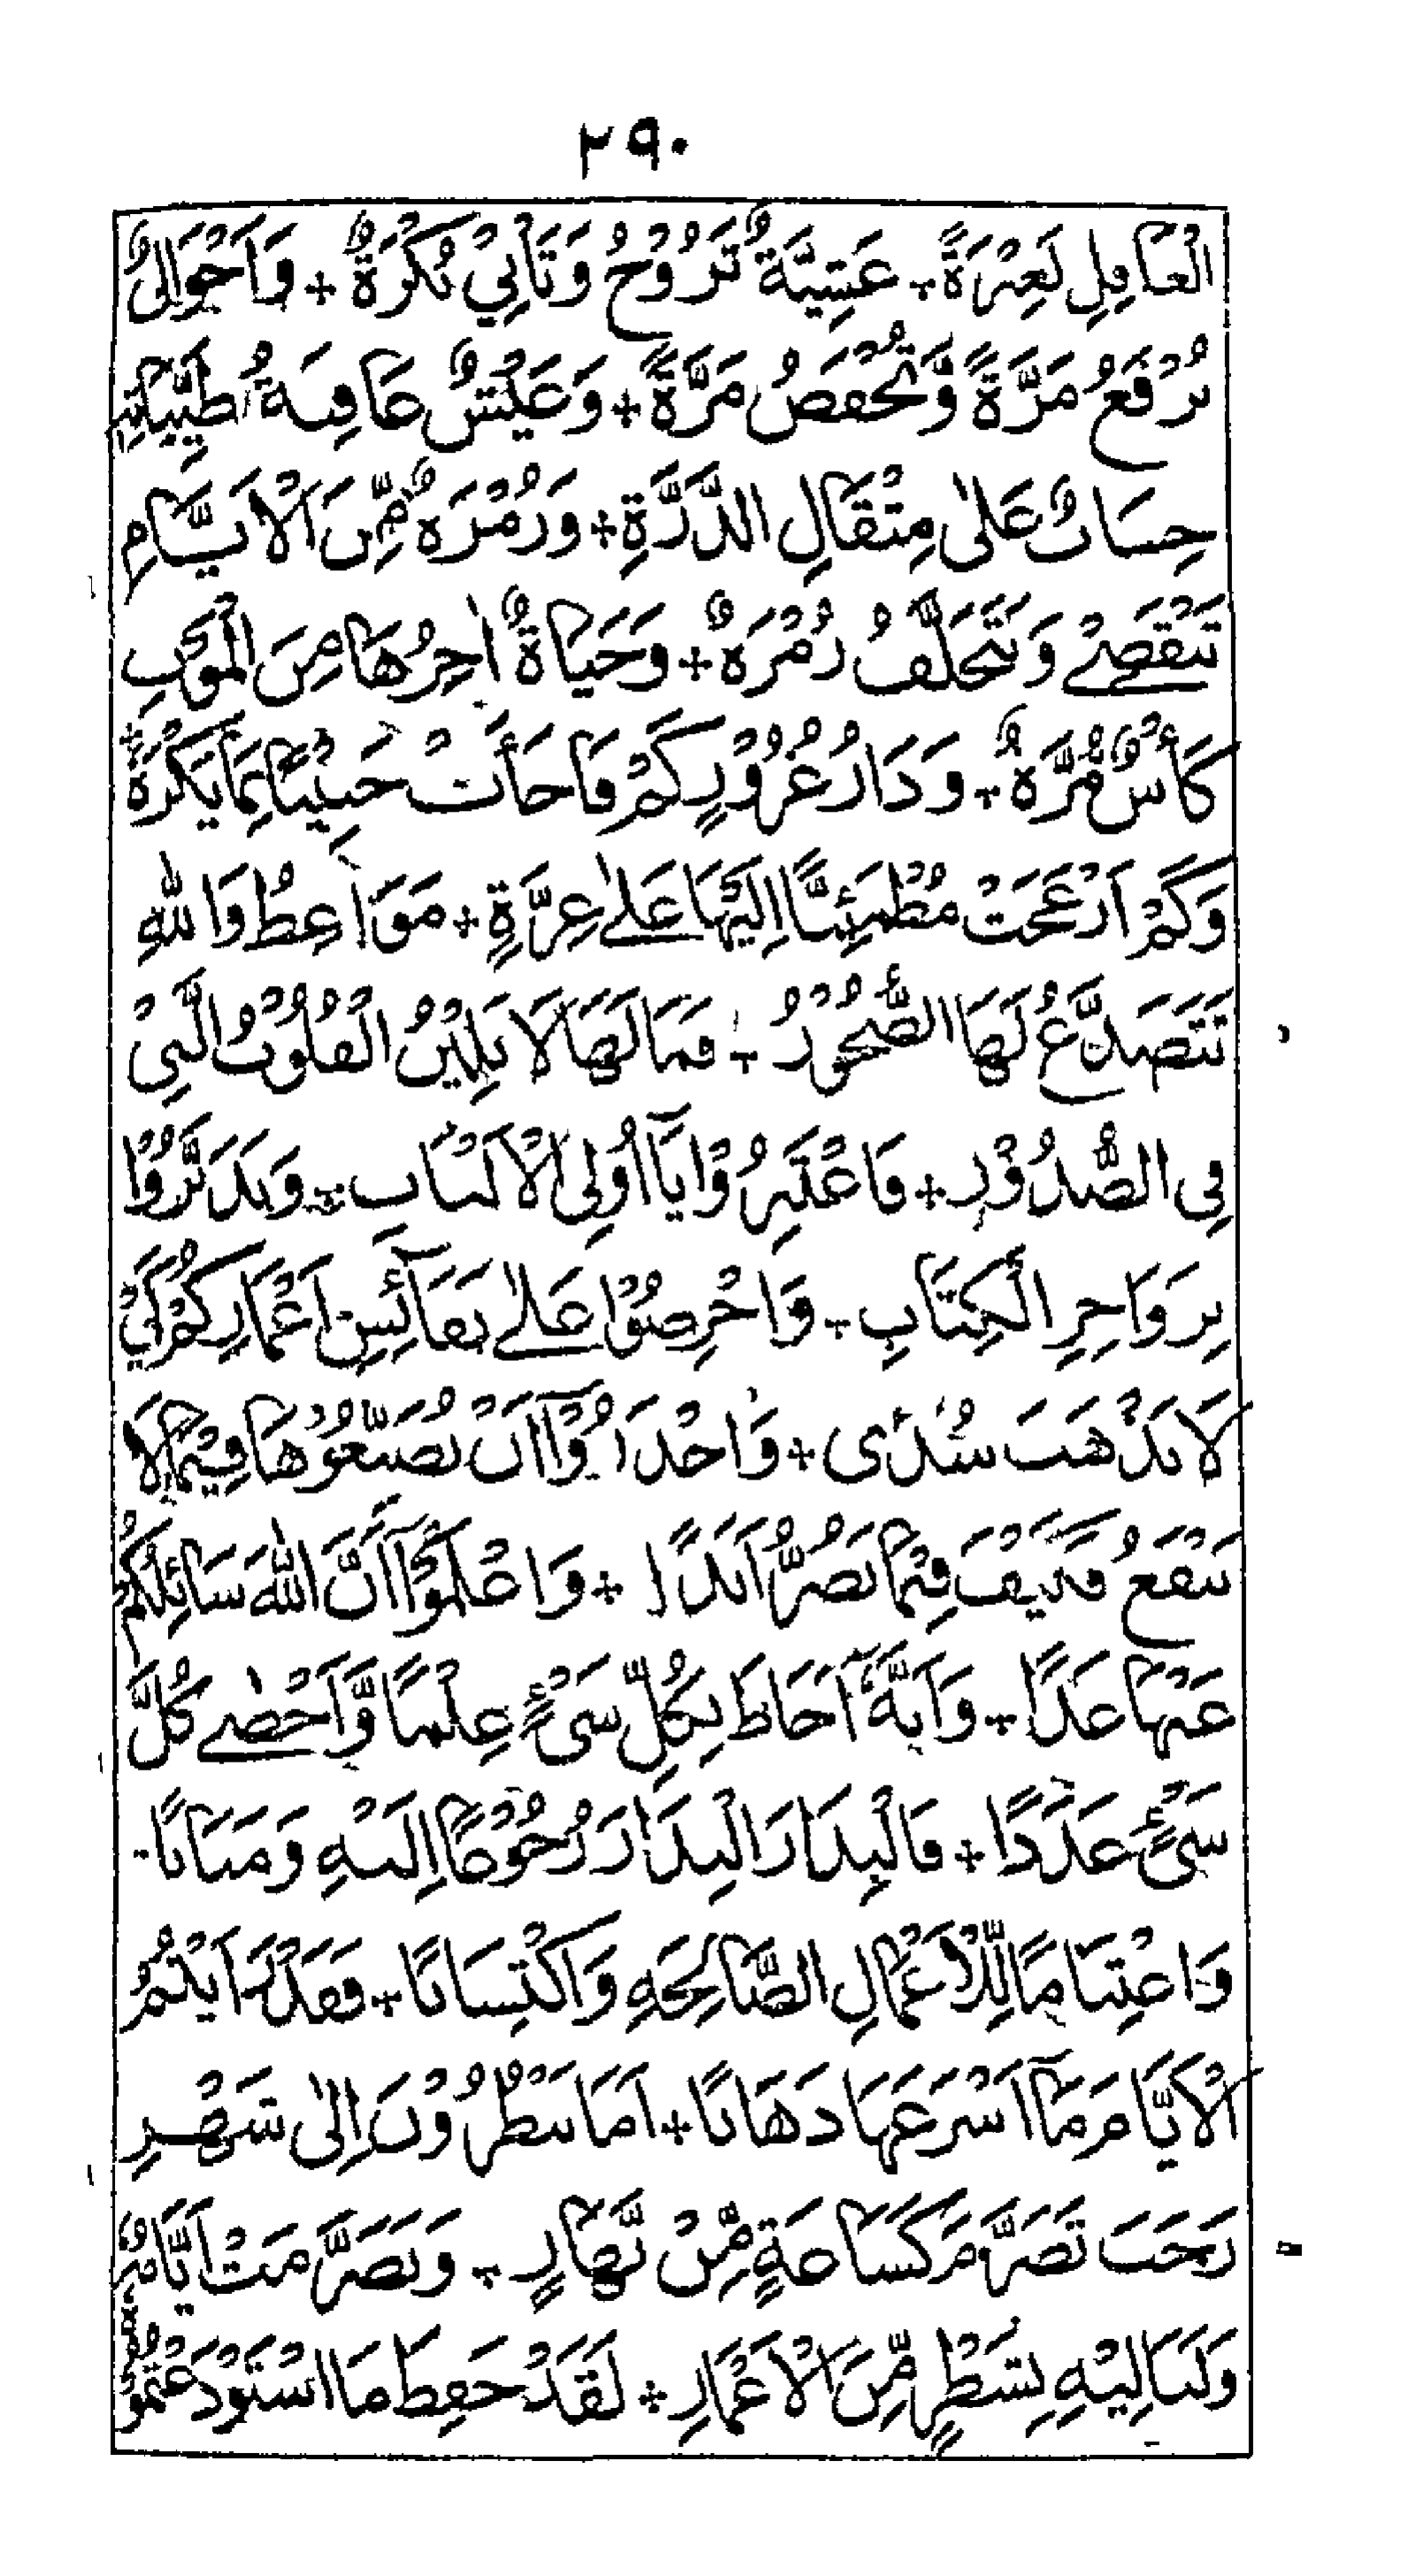 ٢٩٠
الْعَاقِلِ لَعِبْرَةً + عَشِيَّةٌ تَرُوْحُ وَتَأْتِيْ بُكْرَةٌ + وَاَحْوَالٌ
تُرْفَعُ مَرَّةً وَّتُخْفَضُ مَرَّةً + وَعَيْشٌ عَاقِبَةُ طَيِّبَاتِهٖ
حِسَابٌ عَلٰى مِثْقَالِ الذَّرَّةِ + وَزُمْرَةٌ مِّنَ الْاَيَّامِ
تَنْقَضِيْ وَتَتَخَلَّفُ زُمْرَةٌ + وَحَيَاةٌ اٰخِرُهَا مِنَ الْمَوْتِ
كَأْسٌ مُّرَّةٌ + وَدَارُ غُرُوْرٍ كَمْ فَاجَأَتْ حَبِيْبًا بِمَا يَكْرَهُ +
وَكَمْ اَزْعَجَتْ مُطْمَئِنًّا اِلَيْهَا عَلٰى غِرَّةٍ + مَوَاعِظُ وَاللّٰهِ
تَتَصَدَّعُ لَهَا الصُّخُوْرُ + فَمَا لَهَا لَا تَلِيْنُ الْقُلُوْبُ الَّتِيْ
فِى الصُّدُوْرِ + فَاعْتَبِرُوْا يَآ اُولِى الْاَلْبَابِ + وَتَدَبَّرُوْا
بِزَوَاجِرِ الْكِتَابِ + وَاحْرِصُوْا عَلٰى نَفَآئِسِ اَعْمَارِكُمْ كَيْ
لَا تَذْهَبَ سُدًى + وَاحْذَرُوْآ اَنْ تُضَيِّعُوْهَا فِيْمَا لَا
يَنْفَعُ فَكَيْفَ فِيْمَا يَضُرُّ اَبَدًا + وَاعْلَمُوْآ اَنَّ اللّٰهَ سَائِلُكُمْ
عَنْهَا غَدًا + وَاَنَّهٗٓ اَحَاطَ بِكُلِّ شَيْءٍ عِلْمًا وَّاَحْصٰى كُلَّ
شَيْءٍ عَدَدًا + فَالْبِدَارَ الْبِدَارَ رُجُوْعًا اِلَيْهِ وَمَتَابًا
وَاغْتِنَامًا لِّلْاَعْمَالِ الصَّالِحَةِ وَاكْتِسَابًا + فَقَدْ رَاَيْتُمُ
الْاَيَّامَ مَآ اَسْرَعَهَا ذَهَابًا + اَمَا تَنْظُرُوْنَ اِلٰى شَهْرِ
رَجَبَ تَصَرَّمَ كَسَاعَةٍ مِّنْ نَّهَارٍ + وَتَصَرَّمَتْ اَيَّامُهٗ
وَلَيَالِيْهِ بِشَطْرٍ مِّنَ الْاَعْمَارِ + لَقَدْ حَفِظَ مَا اسْتَوْدَعْتُمُوْهُ